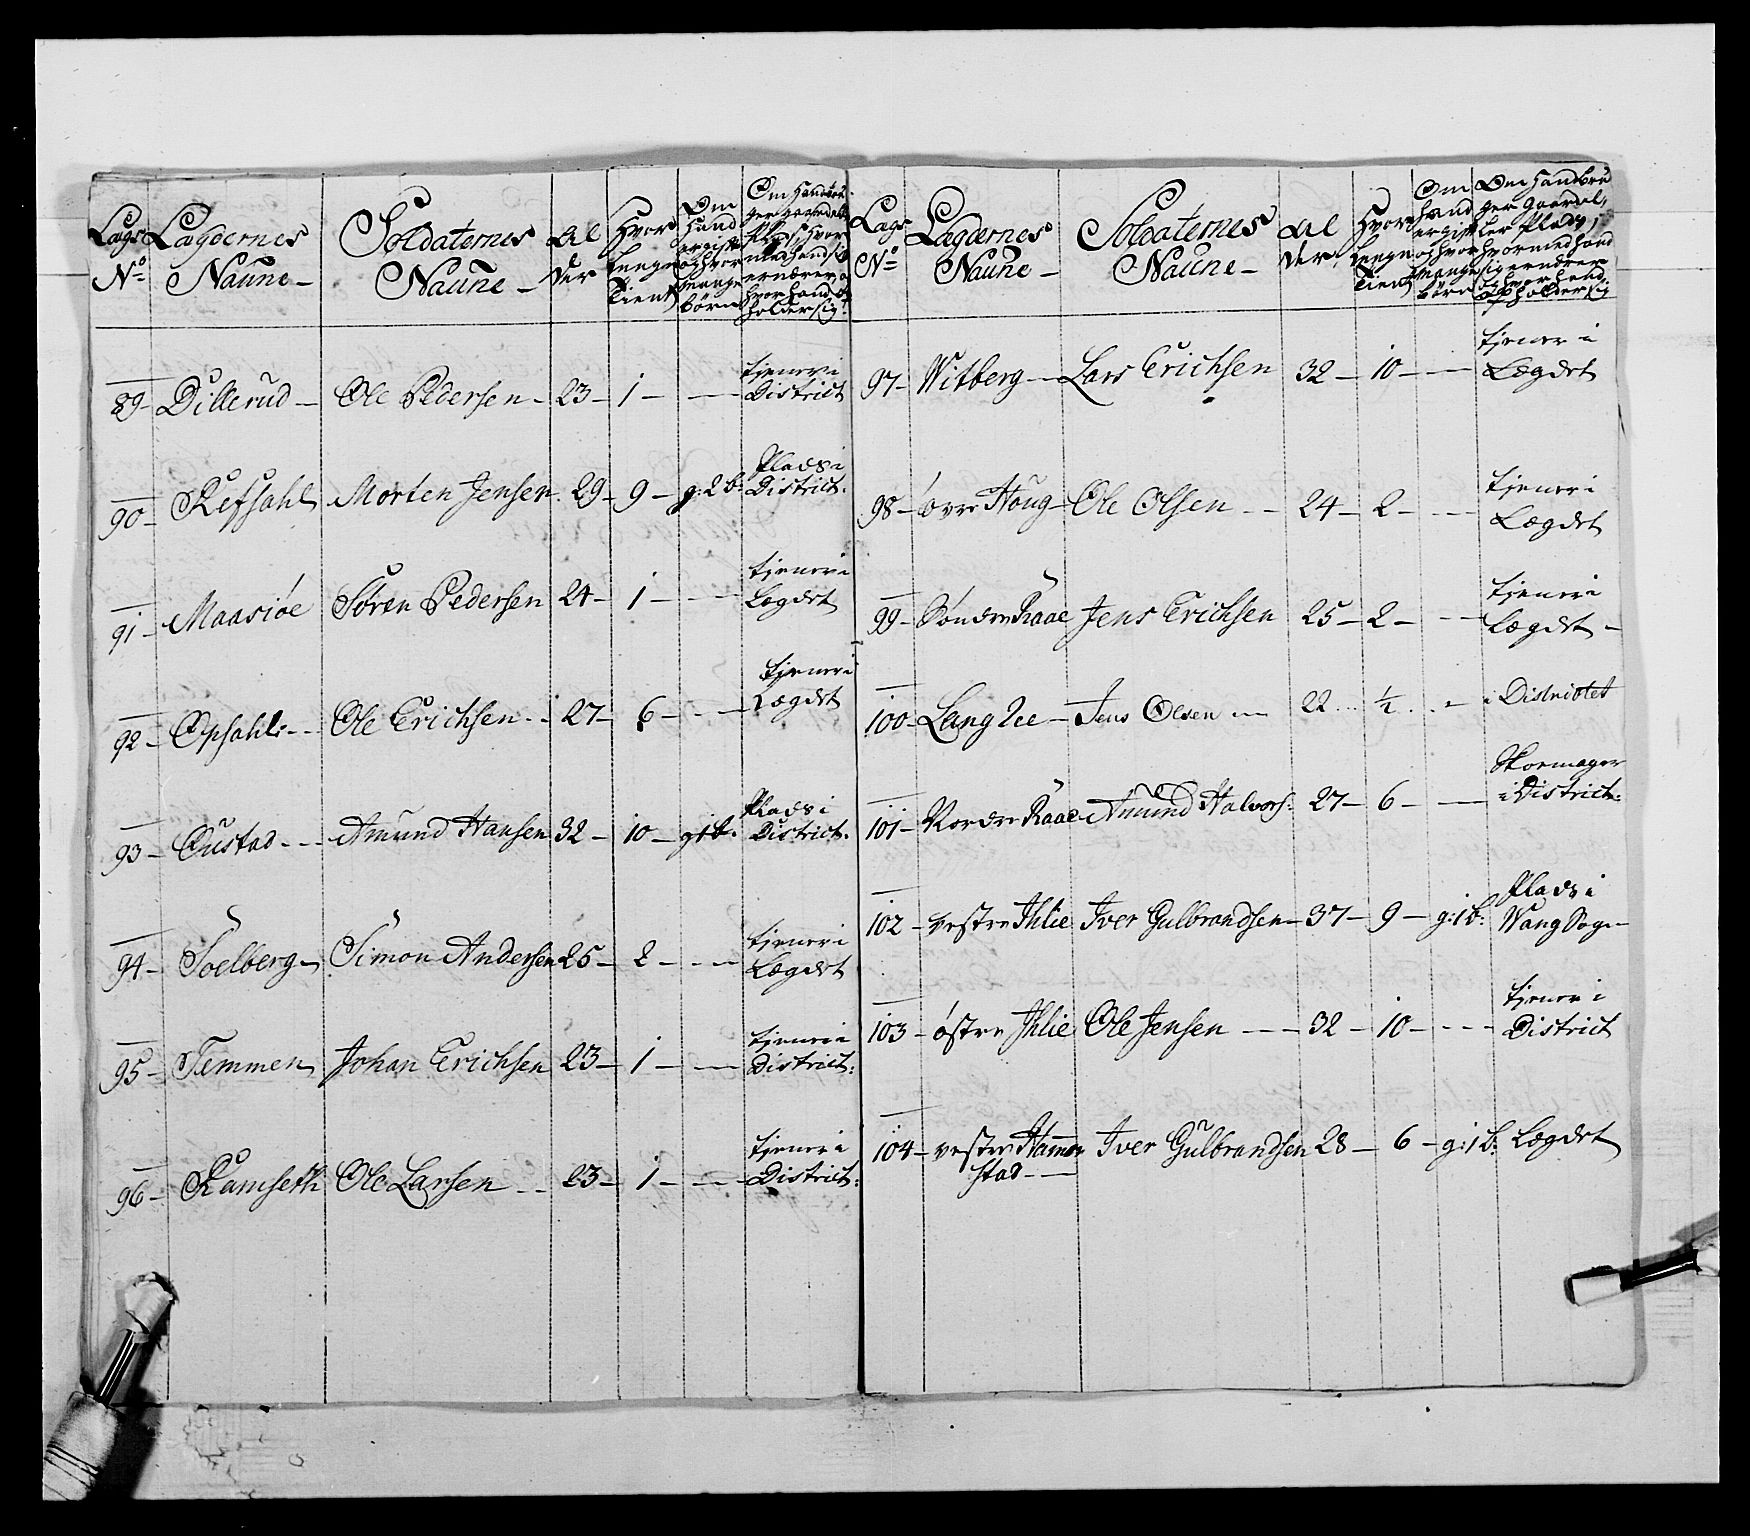 Lægs No
Lægdernes Naune -
Soldaternes Naune -
Al der
Hvor lenge tient
Om Hand er gift og hvor mange børn
Om Hand brúger gaardel: Plads, hvor med hand sig ernærer, og hvor hand op holder sig
89 - Dillerud - Ole Pedersen - 23 - 1 - - tjener i District
90 - Refsahl Morten Jensen - 29 - 9 - g: 2 b: Plads i District:
91 - Maasiøe Søren Pedersen 24 - 1 - - tjener i Lægdet
92 - Opsahl - Ole Erichsen - 27 - 6 - - tjener i Lægdet
93 - Oustad - Amund Hansen 32 - 10 - g 1 b: Plads i District:
94 - Soelberg - Simon Andersen 25 - 2 - - tjener i Lægdet
95 - Temmen Johan Erichsen 23 - 1 - - tjener i District:
96 - Ramseth Ole Larsen - 23 - 1 - - tjener i District:
Lægs No
Lægdernes Naune -
Soldaternes Naune -
Al der
Hvor lenge tient
Om hand er gift og hvor mange børn
Om hand brú ger gaard el, ler Plads, hvormed hand sig ernærer og hvor hand opholder sig
97 - Witberg - Lars Erichsen 32 - 10 - - tjener i Lægdet
98 - øvre Houg - Ole Olsen - 24 - 2 - - tjener i Lægdet
99 - Søndre Raae Jens Erichsen 25 - 2 - - tjener i Lægdet -
100 - Lang Lee - Jens Olsen - 22 - ½ - - i Districtet
101 - Nordre Raae Amund Halvors: 27 - 6 - - Skoemager i District:
102 - vestre Ihlie Iver Gulbrandsen - 37 - 9 - g: 1 b: Plads i Wang Sogn
103 - østre Ihlie Ole Jensen - 32 - 10 - - tjener i District
104 - vestre Hammer stad - Iver Gulbrandsen 28 - 6 - g: 1 b: Lægdet